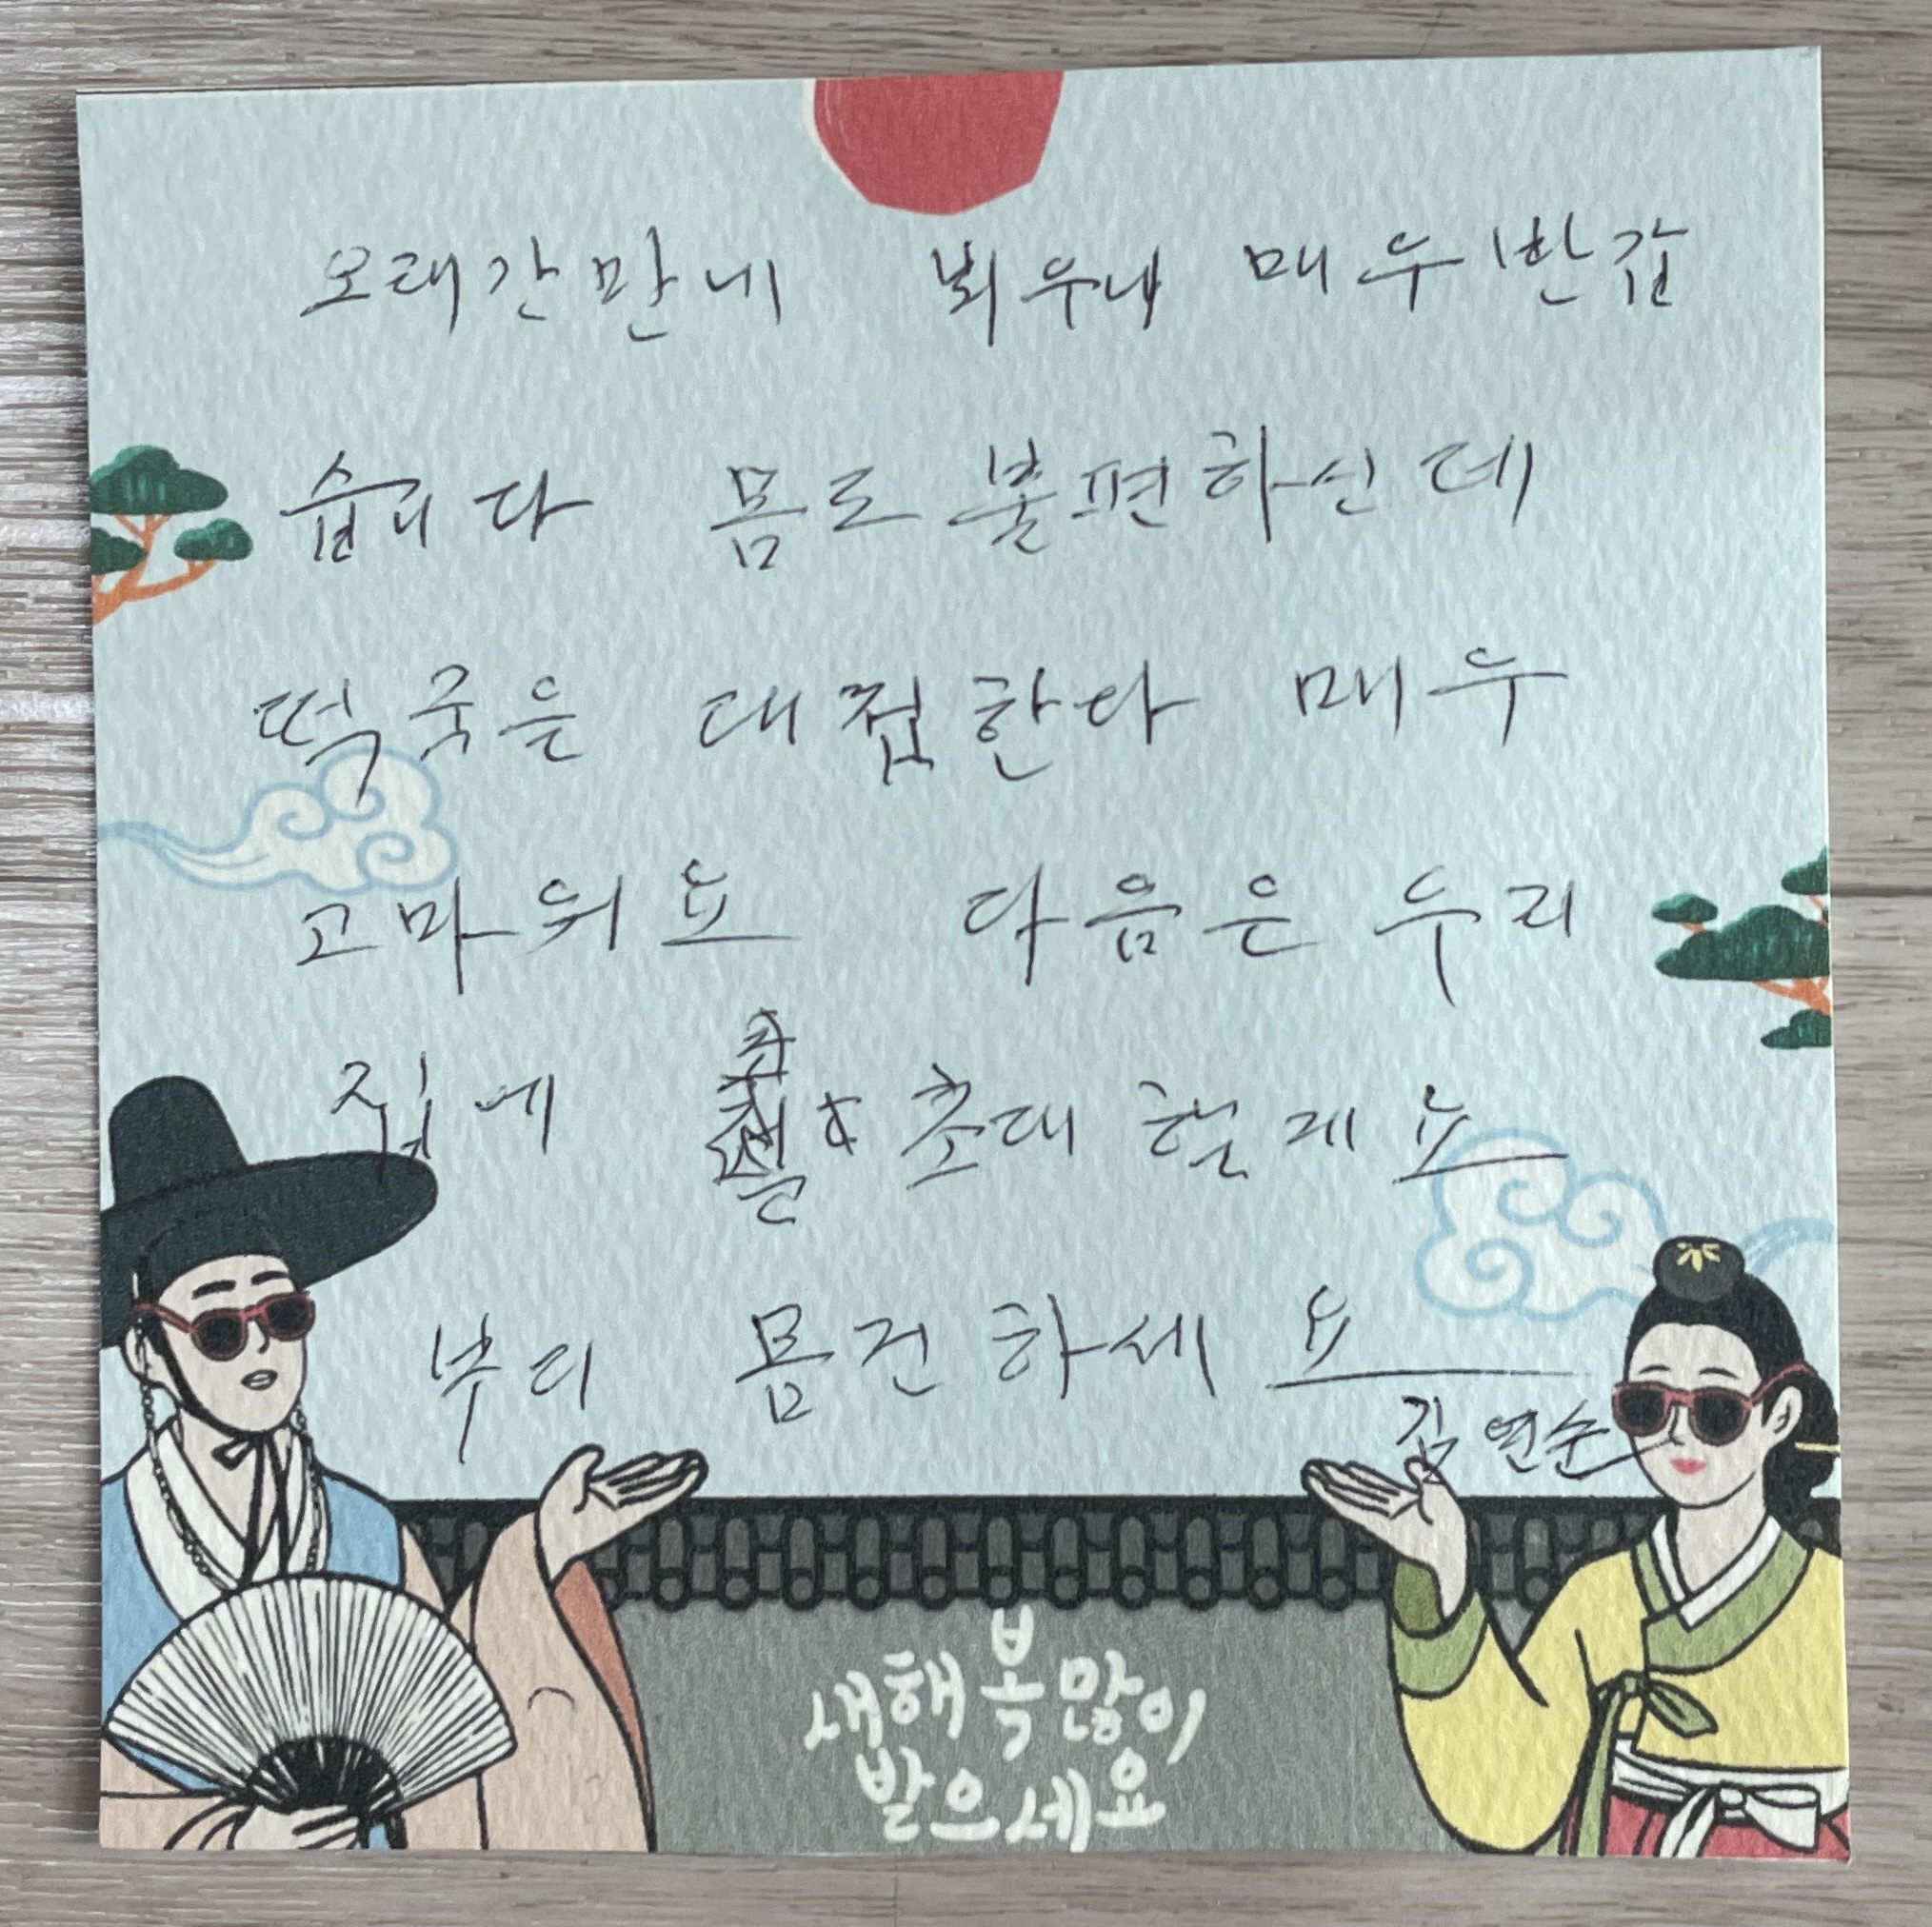 오래간만네 뵈우네 매우반갑
습니다 몸도 불편하신데
떡국은 대접한다 매우
고마워요 다음은 우리
집에 초대 할게요
부디 몸건하세요
김연순
새해 복 많이
받으세요